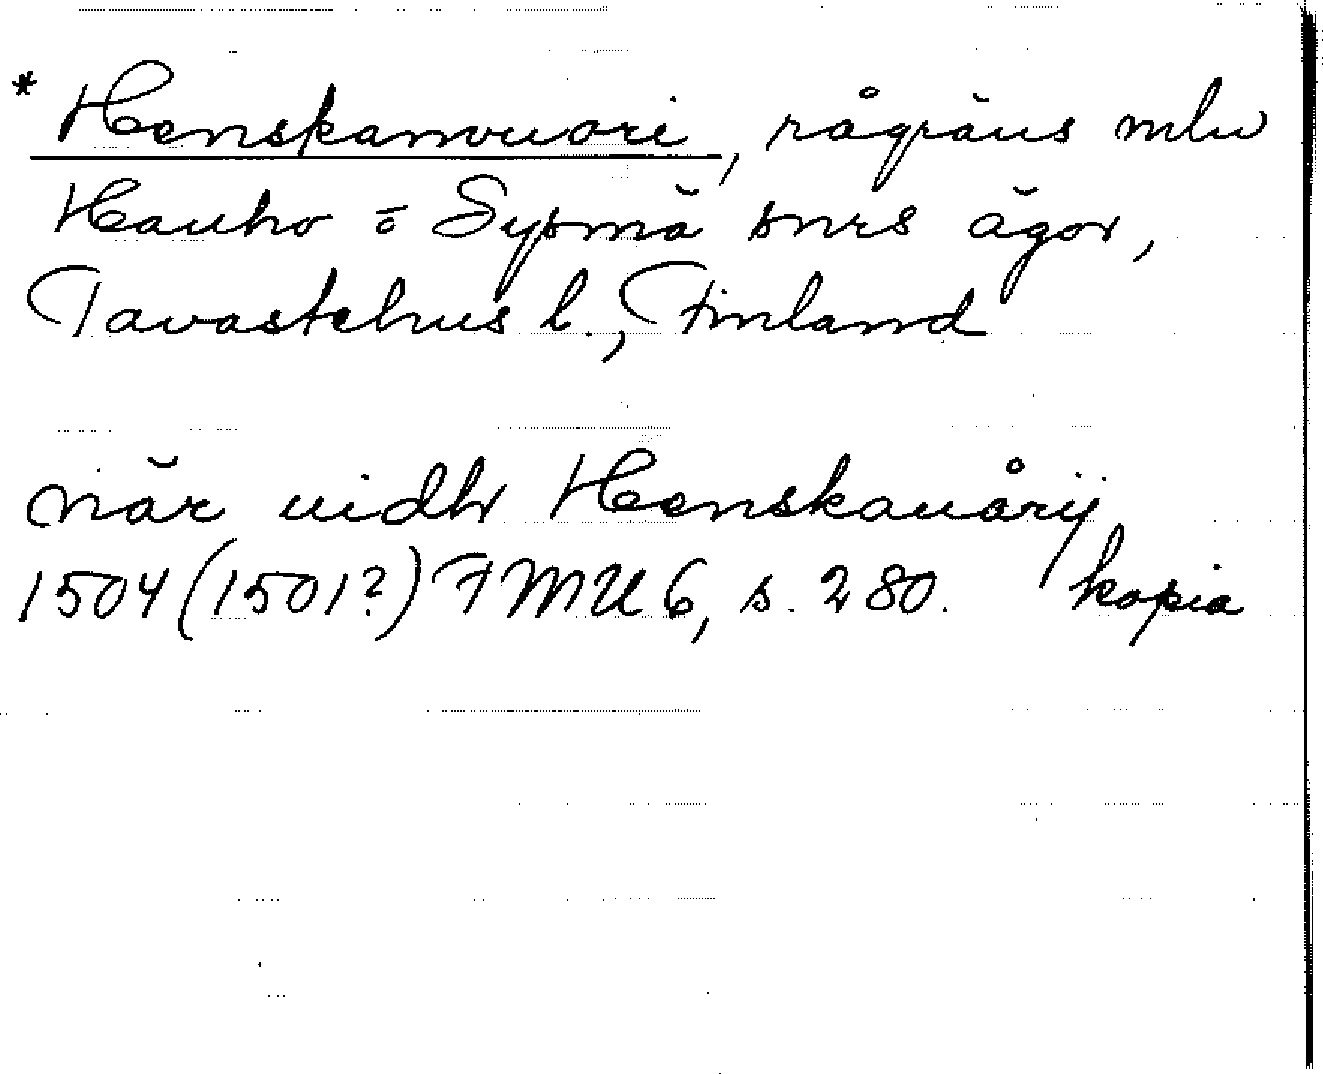 * Henskanvuori, rågräns mlu
Hauho o Sysmä snrs ägor,
Tavastehus l., Finland
när uidh Henskauårij
1504 (1501?) FMU 6, s. 280. kopia